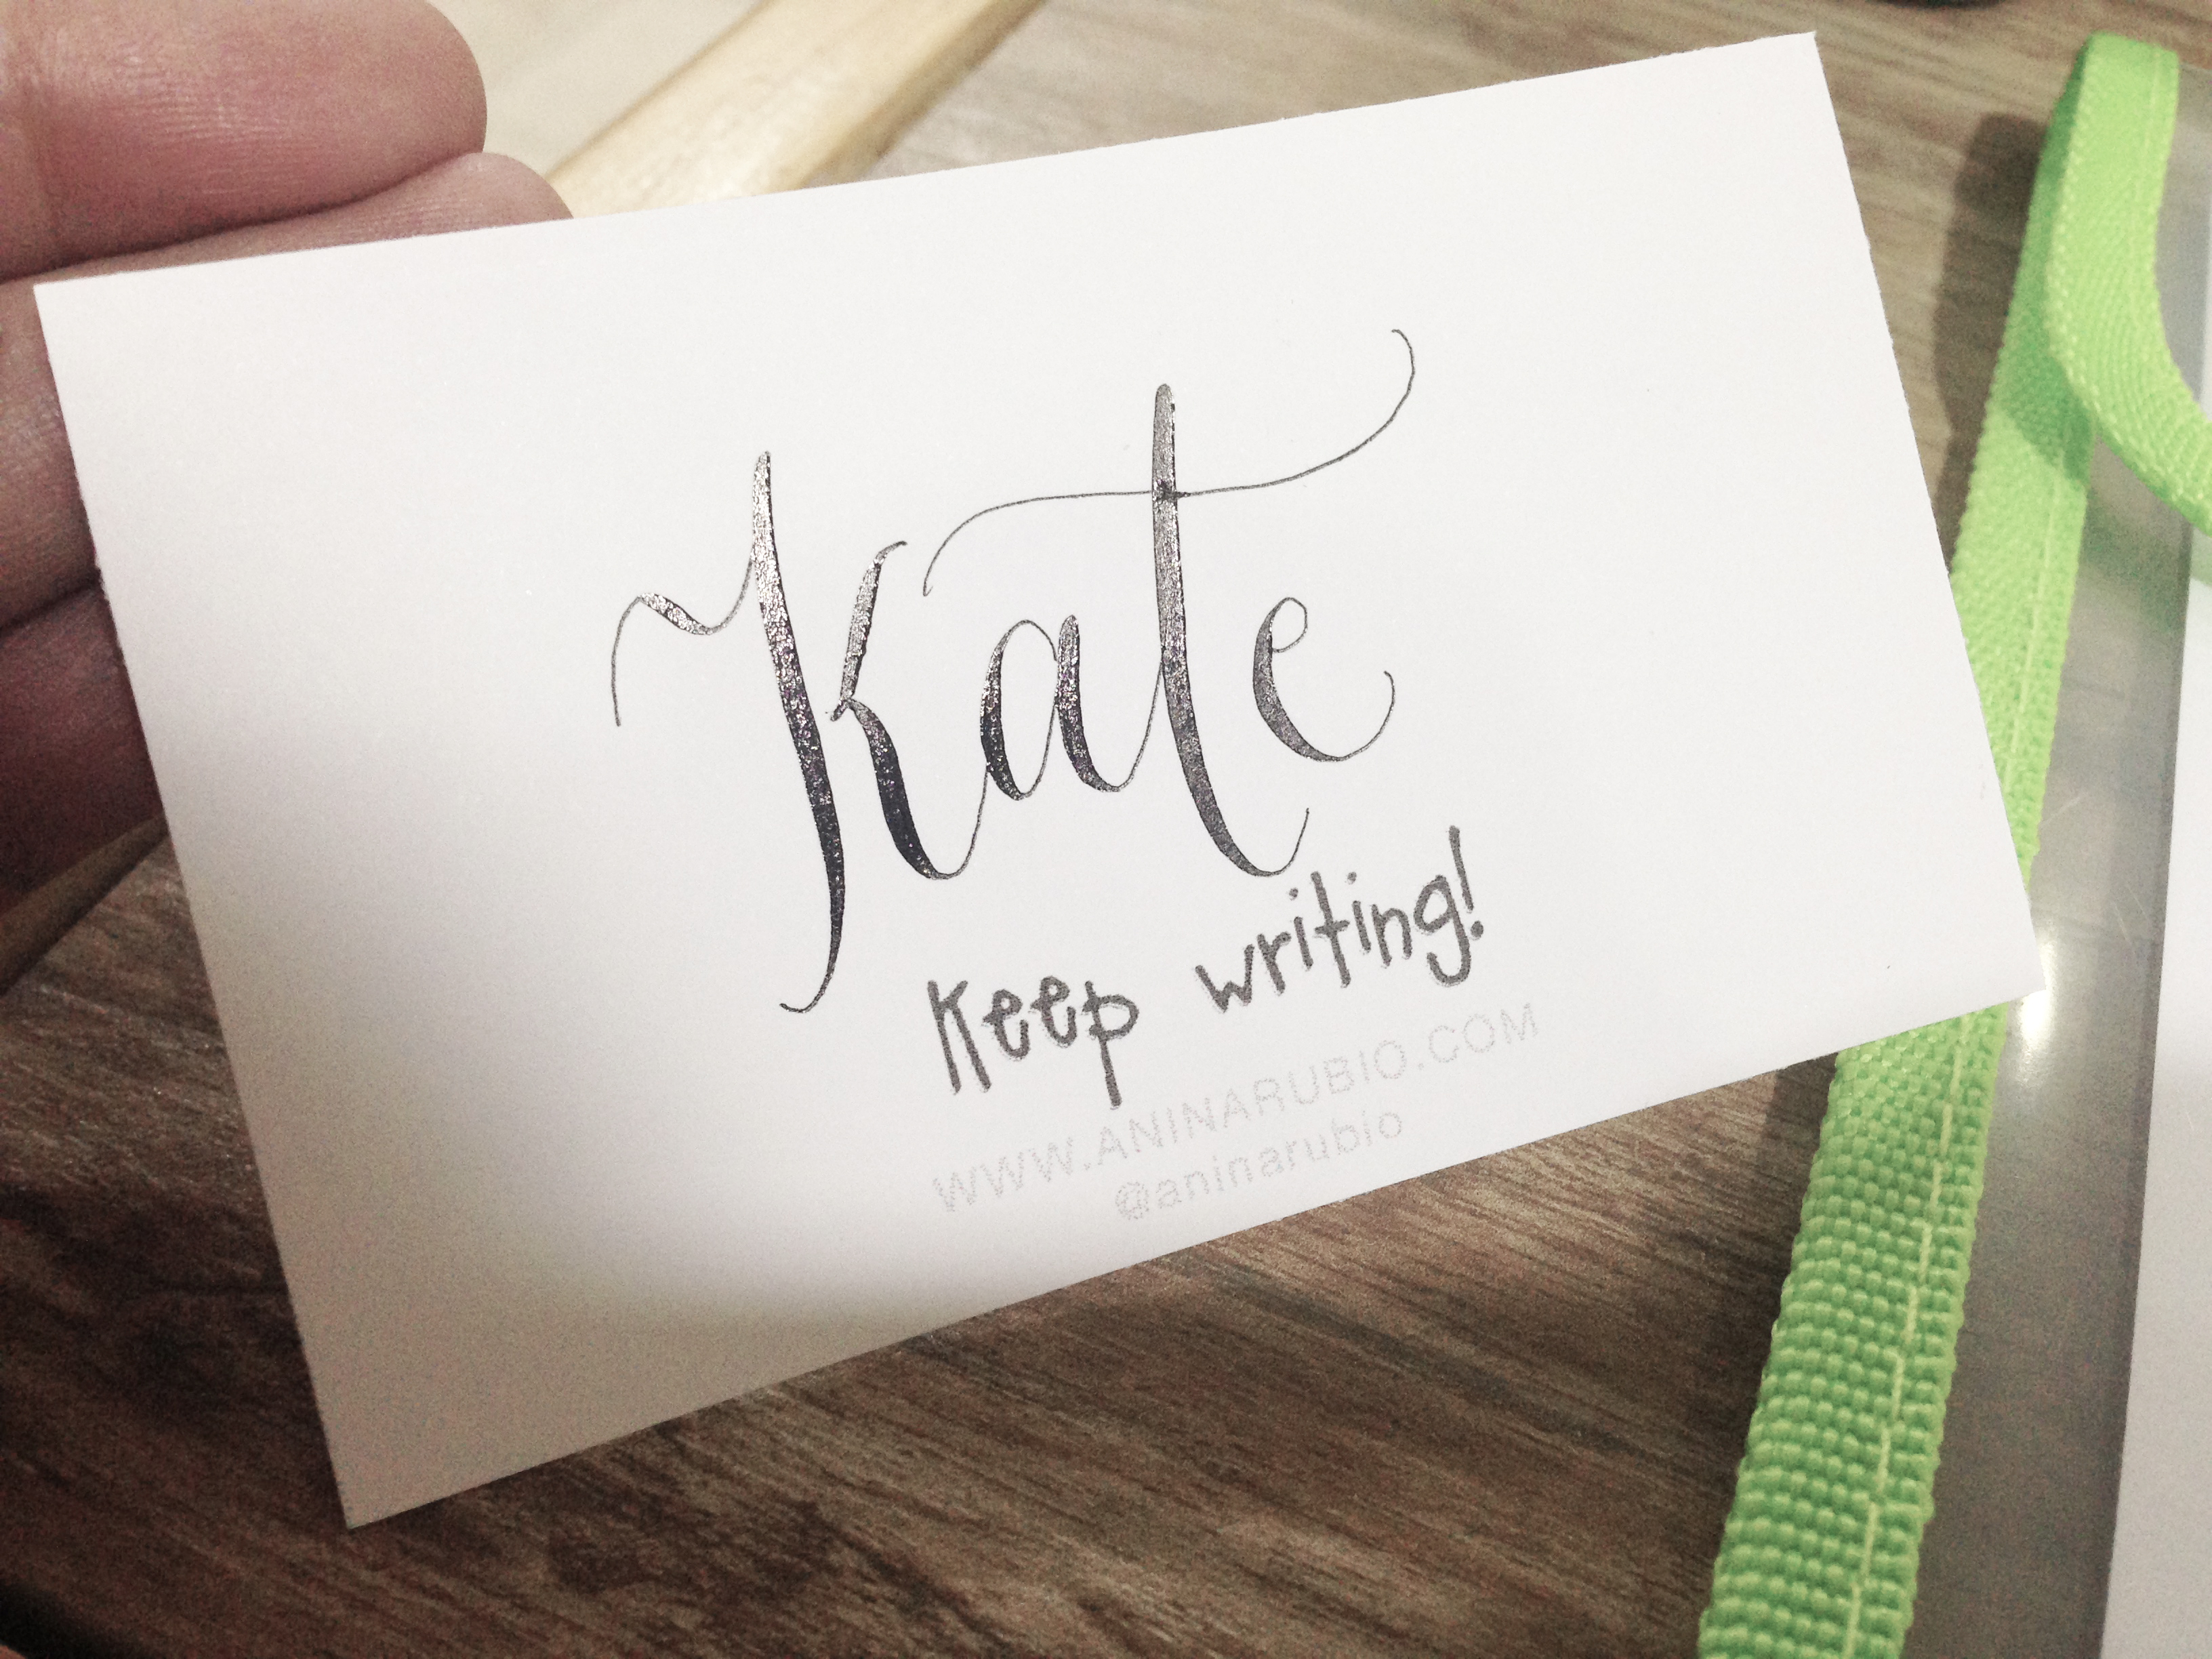 Kate
Keep writing!
WWW.ANINARUBIO.COM
@aninarubio